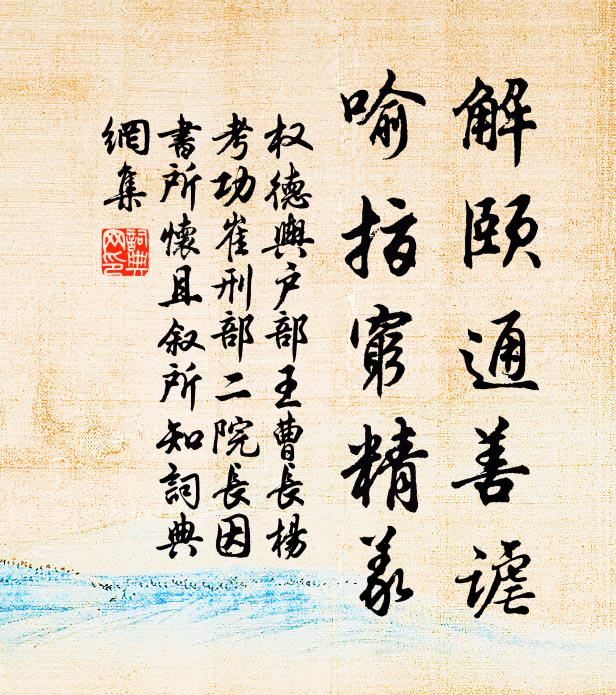 解頤通善謔
喻指窮精義
权德輿户部王曹長楊
考功崔刑部二院長因
書所懷且叙所知詞典
網集
詞典
网印